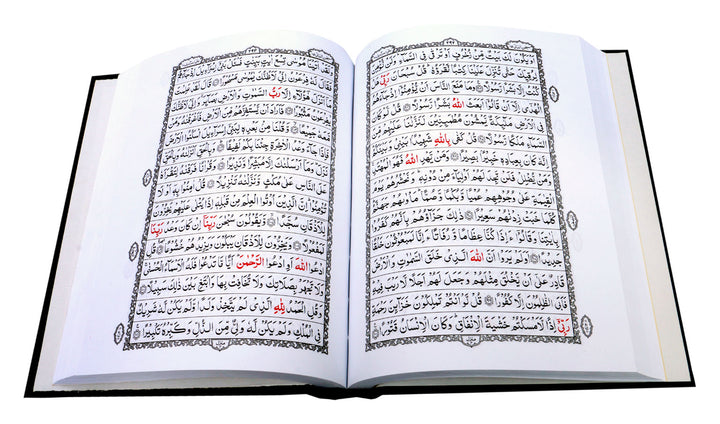 اَوْ يَكُوْنَ لَكَ بَيْتٌ مِّنْ زُخْرُفٍ اَوْ تَرْقٰى فِى السَّمَآءِ وَلَنْ نُّؤْمِنَ
لِرُقِيِّكَ حَتّٰى تُنَزِّلَ عَلَيْنَا كِتٰبًا نَّقْرَؤُهٗ قُلْ سُبْحَانَ رَبِّىْ هَلْ
كُنْتُ اِلَّا بَشَرًا رَّسُوْلًا وَمَا مَنَعَ النَّاسَ اَنْ يُّؤْمِنُوْٓا اِذْ جَآءَهُمُ
الْهُدٰٓى اِلَّآ اَنْ قَالُوْٓا اَبَعَثَ اللّٰهُ بَشَرًا رَّسُوْلًا قُلْ لَّوْ كَانَ فِى
الْاَرْضِ مَلٰٓئِكَةٌ يَّمْشُوْنَ مُطْمَئِنِّيْنَ لَنَزَّلْنَا عَلَيْهِمْ مِّنَ
السَّمَآءِ مَلَكًا رَّسُوْلًا قُلْ كَفٰى بِاللّٰهِ شَهِيْدًۢا بَيْنِىْ وَبَيْنَكُمْ
اِنَّهٗ كَانَ بِعِبَادِهٖ خَبِيْرًۢا بَصِيْرًا وَمَنْ يَّهْدِ اللّٰهُ فَهُوَ الْمُهْتَدِ
وَمَنْ يُّضْلِلْ فَلَنْ تَجِدَ لَهُمْ اَوْلِيَآءَ مِنْ دُوْنِهٖ وَنَحْشُرُهُمْ يَوْمَ
الْقِيٰمَةِ عَلٰى وُجُوْهِهِمْ عُمْيًا وَّبُكْمًا وَّصُمًّا مَاْوٰىهُمْ جَهَنَّمُ
كُلَّمَا خَبَتْ زِدْنٰهُمْ سَعِيْرًا ذٰلِكَ جَزَآؤُهُمْ بِاَنَّهُمْ كَفَرُوْا
بِاٰيٰتِنَا وَقَالُوْٓا ءَاِذَا كُنَّا عِظَامًا وَّرُفَاتًا ءَاِنَّا لَمَبْعُوْثُوْنَ خَلْقًا
جَدِيْدًا اَوَلَمْ يَرَوْا اَنَّ اللّٰهَ الَّذِىْ خَلَقَ السَّمٰوٰتِ وَالْاَرْضَ
قَادِرٌ عَلٰٓى اَنْ يَّخْلُقَ مِثْلَهُمْ وَجَعَلَ لَهُمْ اَجَلًا لَّا رَيْبَ فِيْهِ
فَاَبَى الظّٰلِمُوْنَ اِلَّا كُفُوْرًا قُلْ لَّوْ اَنْتُمْ تَمْلِكُوْنَ خَزَآئِنَ رَحْمَةِ
رَبِّىْٓ اِذًا لَّاَمْسَكْتُمْ خَشْيَةَ الْاِنْفَاقِ وَكَانَ الْاِنْسَانُ قَتُوْرًا
وَلَقَدْ اٰتَيْنَا مُوْسٰى تِسْعَ اٰيٰتٍۢ بَيِّنٰتٍ فَسْـَٔلْ بَنِىْٓ اِسْرَآءِيْلَ اِذْ جَآءَهُمْ
فَقَالَ لَهٗ فِرْعَوْنُ اِنِّىْ لَاَظُنُّكَ يٰمُوْسٰى مَسْحُوْرًا قَالَ لَقَدْ عَلِمْتَ
مَآ اَنْزَلَ هٰٓؤُلَآءِ اِلَّا رَبُّ السَّمٰوٰتِ وَالْاَرْضِ بَصَآئِرَ وَاِنِّىْ لَاَظُنُّكَ
يٰفِرْعَوْنُ مَثْبُوْرًا فَاَرَادَ اَنْ يَّسْتَفِزَّهُمْ مِّنَ الْاَرْضِ فَاَغْرَقْنٰهُ وَمَنْ مَّعَهٗ
جَمِيْعًا وَّقُلْنَا مِنْۢ بَعْدِهٖ لِبَنِىْٓ اِسْرَآءِيْلَ اسْكُنُوا الْاَرْضَ فَاِذَا
جَآءَ وَعْدُ الْاٰخِرَةِ جِئْنَا بِكُمْ لَفِيْفًا وَبِالْحَقِّ اَنْزَلْنٰهُ وَبِالْحَقِّ
نَزَلَ وَمَآ اَرْسَلْنٰكَ اِلَّا مُبَشِّرًا وَّنَذِيْرًا وَقُرْاٰنًا فَرَقْنٰهُ لِتَقْرَاَهٗ
عَلَى النَّاسِ عَلٰى مُكْثٍ وَّنَزَّلْنٰهُ تَنْزِيْلًا قُلْ اٰمِنُوْا بِهٖٓ اَوْ لَا
تُؤْمِنُوْا اِنَّ الَّذِيْنَ اُوْتُوا الْعِلْمَ مِنْ قَبْلِهٖٓ اِذَا يُتْلٰى عَلَيْهِمْ يَخِرُّوْنَ
لِلْاَذْقَانِ سُجَّدًا وَّيَقُوْلُوْنَ سُبْحٰنَ رَبِّنَآ اِنْ كَانَ وَعْدُ رَبِّنَا
لَمَفْعُوْلًا وَيَخِرُّوْنَ لِلْاَذْقَانِ يَبْكُوْنَ وَيَزِيْدُهُمْ خُشُوْعًا قُلِ
ادْعُوا اللّٰهَ اَوِ ادْعُوا الرَّحْمٰنَ اَيًّا مَّا تَدْعُوْا فَلَهُ الْاَسْمَآءُ الْحُسْنٰى
وَلَا تَجْهَرْ بِصَلَاتِكَ وَلَا تُخَافِتْ بِهَا وَابْتَغِ بَيْنَ ذٰلِكَ سَبِيْلًا
وَقُلِ الْحَمْدُ لِلّٰهِ الَّذِىْ لَمْ يَتَّخِذْ وَلَدًا وَّلَمْ يَكُنْ لَّهٗ شَرِيْكٌ
فِى الْمُلْكِ وَلَمْ يَكُنْ لَّهٗ وَلِىٌّ مِّنَ الذُّلِّ وَكَبِّرْهُ تَكْبِيْرًا